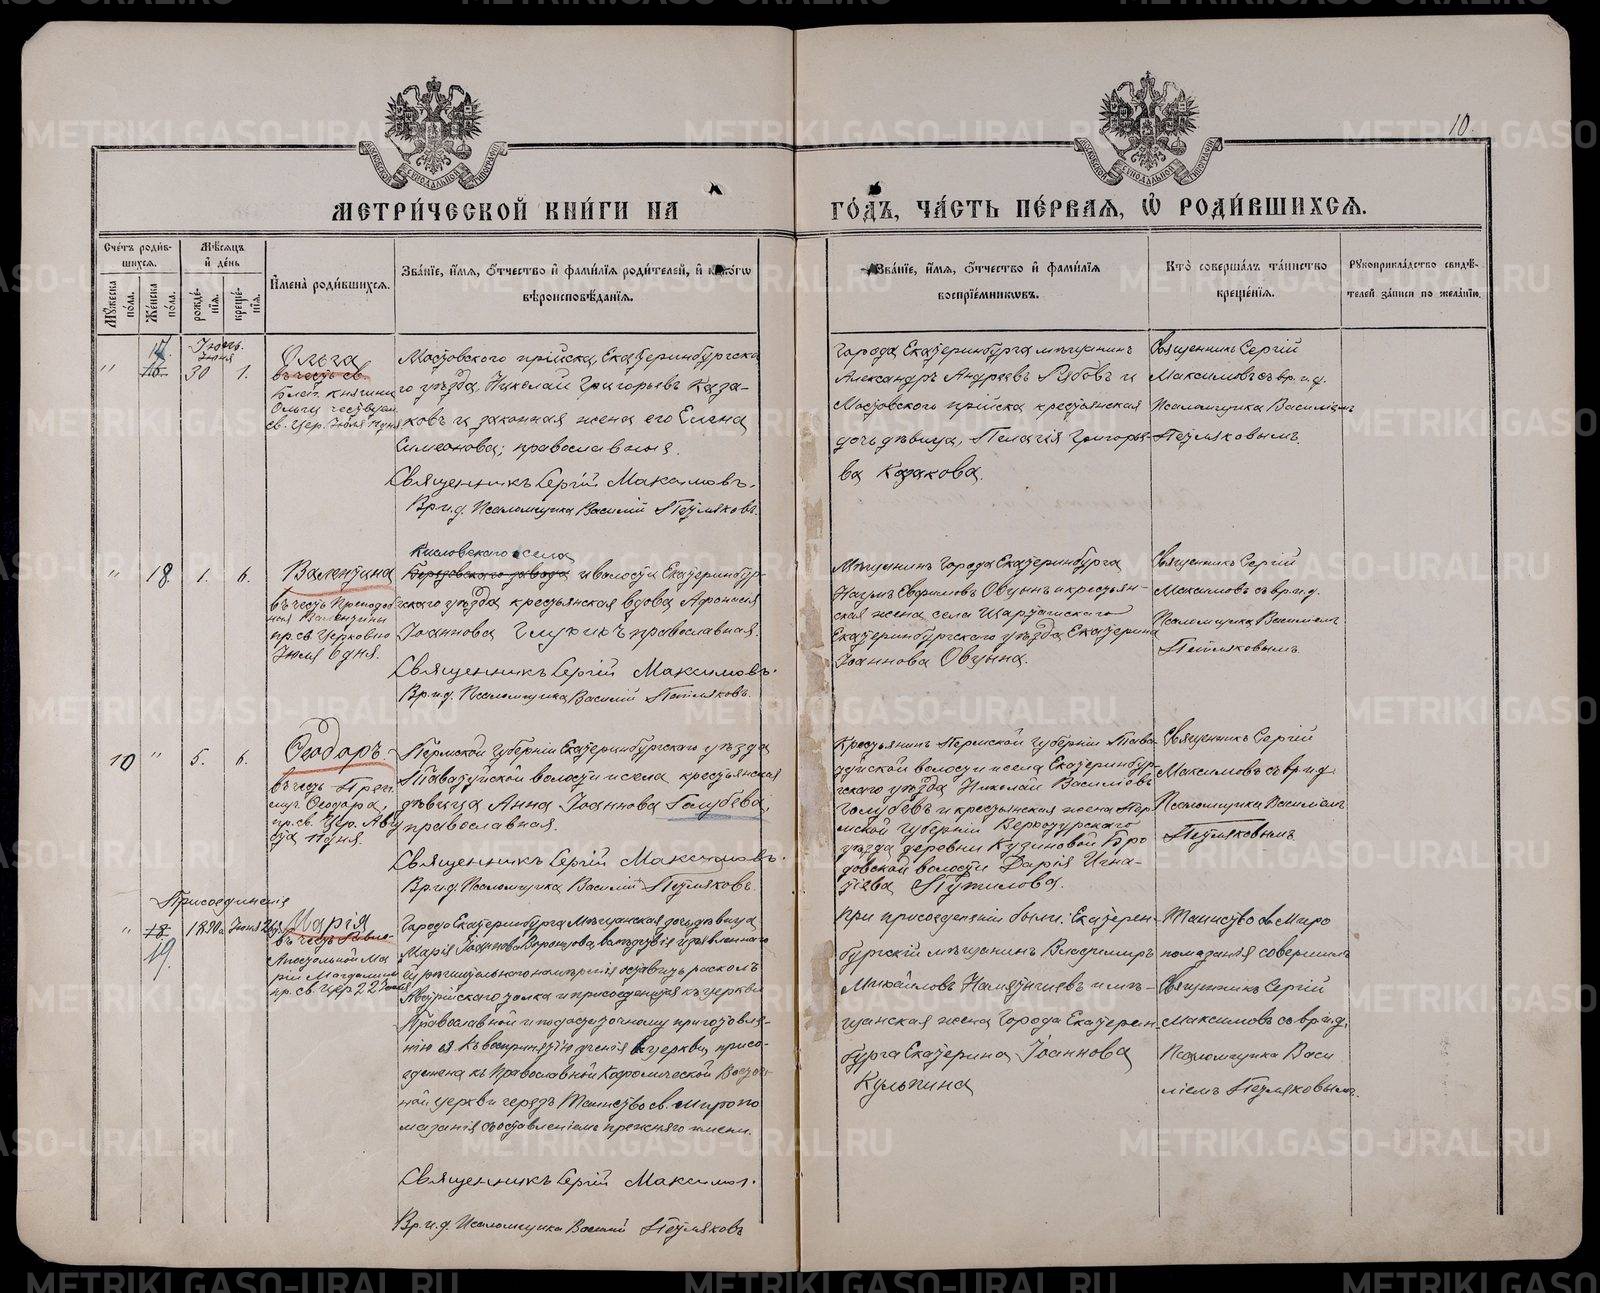 10.
МЕТРИ́ЧЕСКОЙ КНИ́ГИ НА
ГО́ДЪ, ЧА́СТЬ ПЕ́РВАЯ, Ѽ РОДИ́ВШИХСЯ.
Сче́тъ роди́в-
шихся.
Мѣ́сяцъ
и҆ де́нь
Мꙋ́жеска по́ла.
Же́нска по́ла.
рожде́-
нїѧ.
креще́-
нїѧ.
И҆мена̀ роди́вшихся.
Зва́нїе, и҆́мѧ, ѻ҆́тчество и҆ фами́лїѧ роди́телей, и҆ како́гѡ
вѣроисповѣ́данїѧ.
Зва́нїе, и҆́мѧ, ѻ҆́тчество и҆ фами́лїѧ
воспрїе́мникѡвъ.
Кто̀ соверша́лъ та́инство
креще́нїѧ.
Рꙋкоприкла́дство свидѣ́-
телей за́писи по жела́нїю.
Іюль.
Іюня
" 17. 30 1.
Ольга
въ честь св.
Благ. княгини
Ольги честв уем.
св. Цер. Іюля 11 дня
Мостовского пріиска, Екатеринбургска
го уѣзда, Николай Григорьевъ Каза-
ковъ и законная жена его Елена
Симеонова; православныя.
Священникъ Сергій Максимовъ.
Вр. и. д. Псаломщика Василій Петуляковъ.
Города Екатеринбурга мѣщанинъ
Александръ Андреевъ Рябовъ и
Мостовского пріиска крестьянская
дочь дѣвица, Пелагія Григорье-
ва Казакова.
Священникъ Сергій
Максимовъ съ вр. и. д.
Псаломщика Василіемъ
" 18. 1. 6.
Валентина
въ честь Преподоб
ная Валентины
пр. св. Церковію
Іюля 6 дня.
Кисловскаго села
Березовского завода и волости Екатеринбур-
гскаго уѣзда крестьянская вдова Афонасія
Іоаннова православная.
Священникъ Сергій Максимовъ.
Вр. и. д. Псаломщика Василій
Мѣщанинъ Города Екатеринбурга
Наумъ Евфимовъ и крестьян-
ская жена села Шарташскаго
Екатеринбургскаго уѣзда Екатерина
Іоаннова
Священникъ Сергій
Максимовъ съ вр. и. д.
Псаломщика Василіемъ
10 " 5. 6.
Ѳеодоръ
въ честь Преп.
муч. Ѳеодора,
пр. св. Цер. Авгу
ста 11 дня.
Пермской губерніи Екатеринбургскаго уѣзда
Таватуйской волости и села крестьянская
дѣвица Анна Іоаннова Голубева,
православная.
Священникъ Сергій Максимовъ.
Вр. и. д. Псаломщика Василій
Крестьянинъ Пермской губерніи Тава-
туйской волости и села Екатеринбур-
гскаго уѣзда Николай Василіевъ
Голубевъ и крестьянская жена Пер
мской губерніи Верхотурскаго
уѣзда деревни Кузиновой Бро
довской волости Дарія Игна-
тіева
Священникъ Сергій
Максимовъ съ вр. и. д.
Псаломщика Василіемъ
Присоединенія
" 18 1890 г. Іюня
19.
Марія
въ честь Равно-
Апостольной Ма
ріи Магдалины
пр. св. Цер. 22 Іюля
Города Екатеринбурга Мѣщанская дочь дѣвица
Марія Іоаннова Воронцова, изъявленнаго
ей рѣшительного намѣренія оставить расколъ
Австрійскаго толка и присоединится къ церкви
Православной и по достаточному приготовле-
нію ея къ воспринятію ученія церкви, присо-
единена къ Православной Кафолической Восточ-
ной церкви чрезъ Таинство св. Миропо
мазанія съ оставленіемъ прежняго имени.
Священникъ Сергій Максимов.
Вр. и. д. Псаломщика Василій
При присоединеніи были: Екатерин-
бургскій мѣщанинъ Владимиръ
Михайловъ и мѣ-
щанская жена Города Екатерин-
бурга Екатерина Іоаннова
Кульпина
Таинство св. Миро
помазанія совершилъ
Священникъ Сергій
Максимовъ съ вр. и. д.
Псаломщика Васи
ліемъ
METRIKI.GASO-URAL.RU